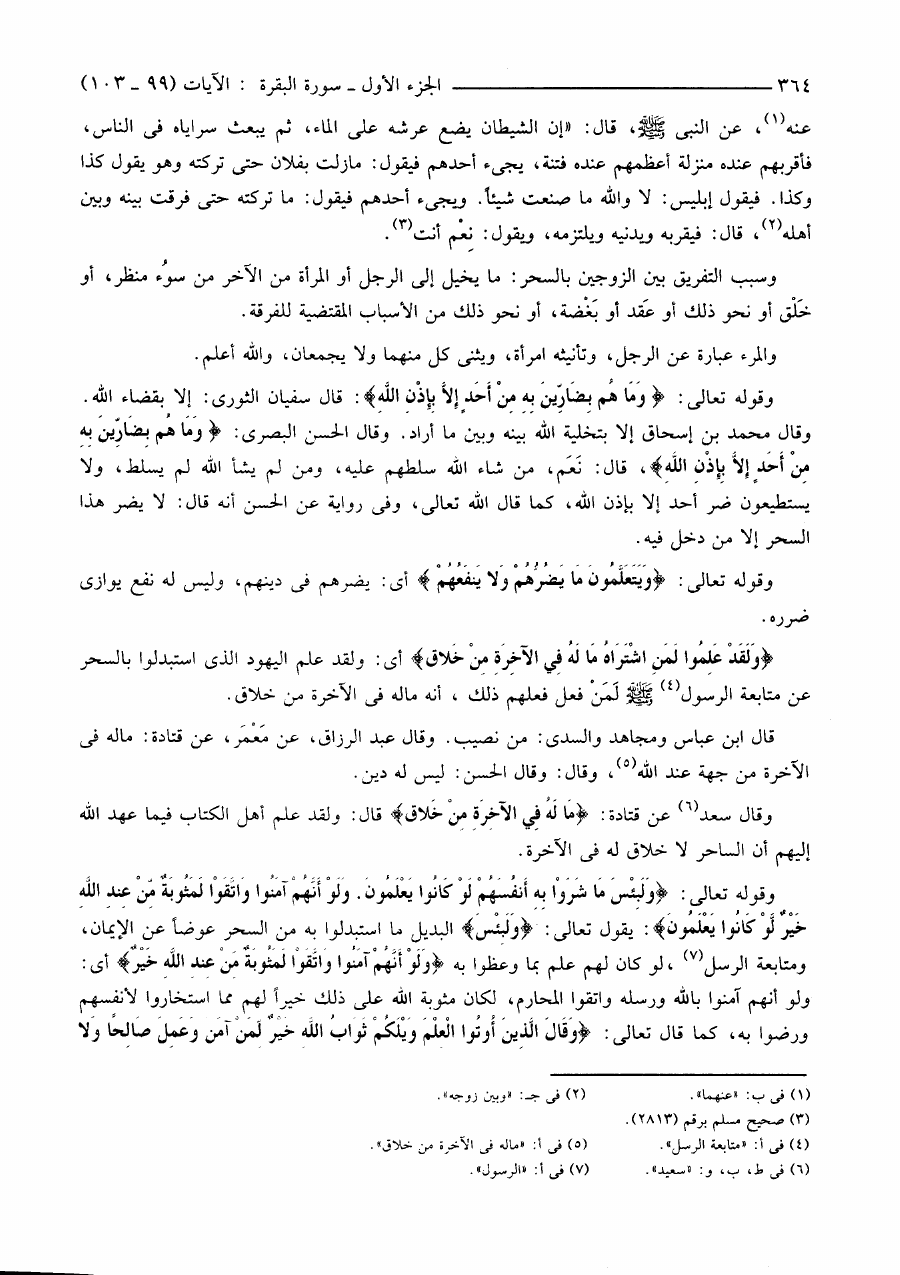 ٣٦٤ ــــــــــــــــــــــــــــــــــ الجزء الأول ـ سورة البقرة : الآيات (٩٩ ـ ١٠٣)
عنه(١)، عن النبى ﷺ، قال: «إن الشيطان يضع عرشه على الماء، ثم يبعث سراياه فى الناس،
فأقربهم عنده منزلة أعظمهم عنده فتنة، يجىء أحدهم فيقول: مازلت بفلان حتى تركته وهو يقول كذا
وكذا. فيقول إبليس: لا والله ما صنعت شيئاً. ويجىء أحدهم فيقول: ما تركته حتى فرقت بينه وبين
أهله(٢)، قال: فيقربه ويدنيه ويلتزمه، ويقول: نِعْم أنت(٣).
وسبب التفريق بين الزوجين بالسحر: ما يخيل إلى الرجل أو المرأة من الآخر من سوُء منظر، أو
خَلْق أو نحو ذلك أو عَقد أو بَغْضة، أو نحو ذلك من الأسباب المقتضية للفرقة.
والمرء عبارة عن الرجل، وتأنيثه امرأة، ويثنى كل منهما ولا يجمعان، والله أعلم.
وقوله تعالى: ﴿ وَمَا هُم بِضَارِّينَ بِهِ مِنْ أَحَدٍ إِلاَّ بِإِذْنِ اللَّهِ﴾: قال سفيان الثورى: إلا بقضاء الله.
وقال محمد بن إسحاق إلا بتخلية الله بينه وبين ما أراد. وقال الحسن البصرى: ﴿ وَمَا هُم بِضَارِّينَ بِهِ
مِنْ أَحَدٍ إِلاَّ بِإِذْنِ اللَّهِ﴾، قال: نَعَم، من شاء الله سلطهم عليه، ومن لم يشأ الله لم يسلط، ولا
يستطيعون ضر أحد إلا بإذن الله، كما قال الله تعالى، وفى رواية عن الحسن أنه قال: لا يضر هذا
السحر إلا من دخل فيه.
وقوله تعالى: ﴿وَيَتَعَلَّمُونَ مَا يَضُرُّهُمْ وَلا يَنفَعُهُمْ ﴾ أى: يضرهم فى دينهم، وليس له نفع يوازى
ضرره.
﴿وَلَقَدْ عَلِمُوا لَمَنِ اشْتَرَاهُ مَا لَهُ فِي الآخِرَةِ مِنْ خَلاقٍ﴾ أى: ولقد علم اليهود الذى استبدلوا بالسحر
عن متابعة الرسول(٤) ﷺ لَمَنْ فعل فعلهم ذلك ، أنه ماله فى الآخرة من خلاق.
قال ابن عباس ومجاهد والسدى: من نصيب. وقال عبد الرزاق، عن مَعْمَر، عن قتادة: ماله فى
الآخرة من جهة عند الله(٥)، وقال: وقال الحسن: ليس له دين.
وقال سعد(٦) عن قتادة: ﴿مَا لَهُ فِي الآخِرَةِ مِنْ خَلاقٍ﴾ قال: ولقد علم أهل الكتاب فيما عهد الله
إليهم أن الساحر لا خلاق له فى الآخرة.
وقوله تعالى: ﴿وَلَبِئْسَ مَا شَرَوْا بِهِ أَنفُسَهُمْ لَوْ كَانُوا يَعْلَمُونَ. وَلَوْ أَنَّهُمْ آمَنُوا وَاتَّقَوْا لَمَثُوبَةٌ مِّنْ عِندِ اللَّهِ
خَيْرٌ لَّوْ كَانُوا يَعْلَمُونَ﴾: يقول تعالى: ﴿وَلَبِئْسَ﴾ البديل ما استبدلوا به من السحر عوضاً عن الإيمان،
ومتابعة الرسل(٧) ،لو كان لهم علم بما وعظوا به ﴿وَلَوْ أَنَّهُمْ آمَنُوا واتَّقَوْا لَمَثُوبَةٌ مِّنْ عِندِ اللَّهِ خَيْرٌ﴾ أى:
ولو أنهم آمنوا بالله ورسله واتقوا المحارم، لكان مثوبة الله على ذلك خيراً لهم مما استخاروا لأنفسهم
ورضوا به، كما قال تعالى: ﴿وَقَالَ الَّذِينَ أُوتُوا الْعِلْمَ وَيْلَكُمْ ثَوَابُ اللَّهِ خَيْرٌ لِّمَنْ آمَنَ وَعَمِلَ صَالِحًا وَلا
(١) فى ب: «عنهما». (٢) فى جـ: «وبين زوجه».
(٣) صحيح مسلم برقم (٢٨١٣).
(٤) فى أ: «متابعة الرسل». (٥) فى أ: «ماله فى الآخرة من خلاق».
(٦) فى ط، ب، و: «سعيد». (٧) فى أ: «الرسول».